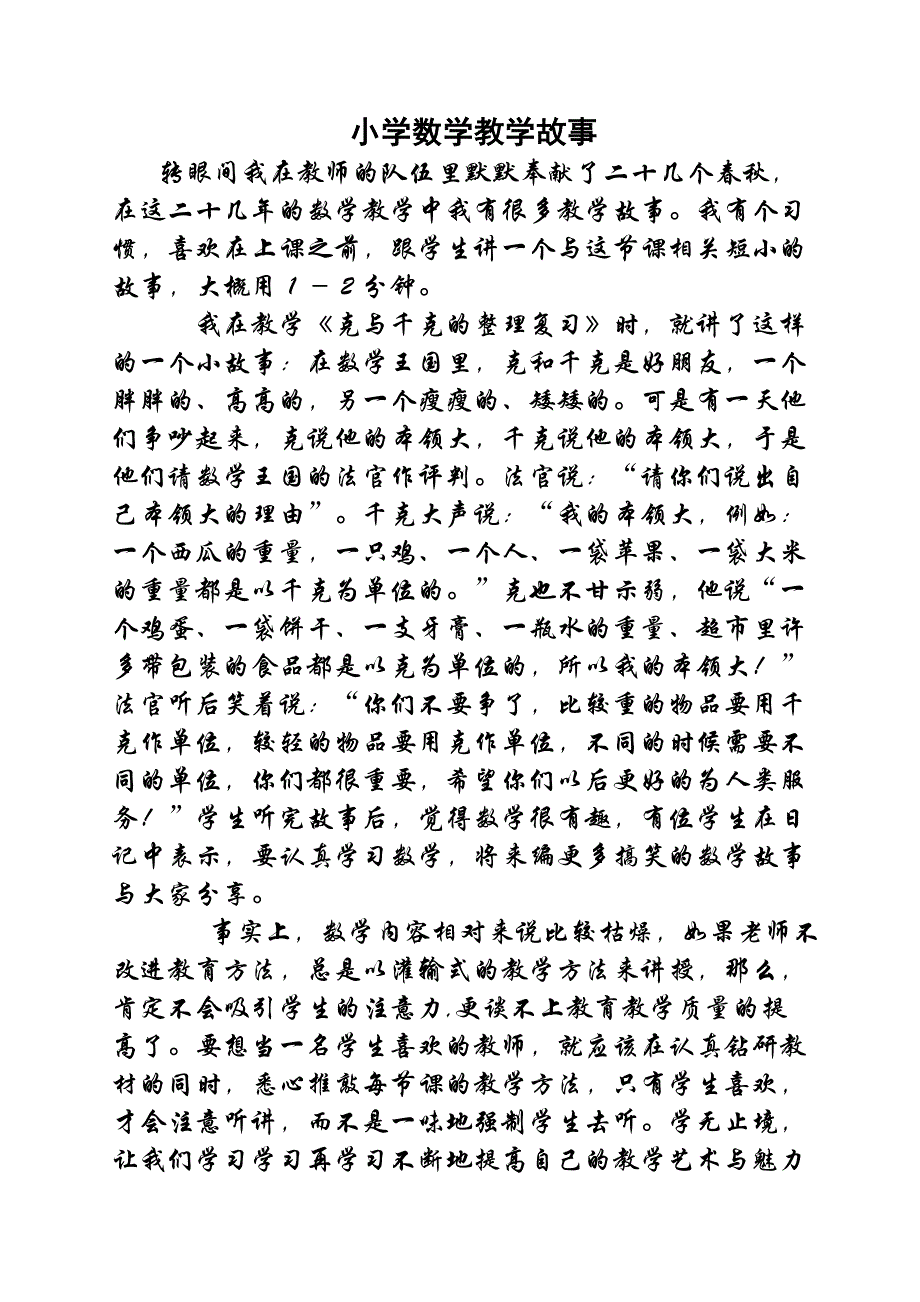 小学数学教学故事
转眼间我在教师的队伍里默默奉献了二十几个春秋，
在这二十几年的数学教学中我有很多教学故事。我有个习
惯，喜欢在上课之前，跟学生讲一个与这节课相关短小的
故事，大概用1－2分钟。
我在教学《克与千克的整理复习》时，就讲了这样
的一个小故事：在数学王国里，克和千克是好朋友，一个
胖胖的、高高的，另一个瘦瘦的、矮矮的。可是有一天他
们争吵起来，克说他的本领大，千克说他的本领大，于是
他们请数学王国的法官作评判。法官说：“请你们说出自
己本领大的理由”。千克大声说：“我的本领大，例如：
一个西瓜的重量，一只鸡、一个人、一袋苹果、一袋大米
的重量都是以千克为单位的。”克也不甘示弱，他说“一
个鸡蛋、一袋饼干、一支牙膏、一瓶水的重量、超市里许
多带包装的食品都是以克为单位的，所以我的本领大！”
法官听后笑着说：“你们不要争了，比较重的物品要用千
克作单位，较轻的物品要用克作单位，不同的时候需要不
同的单位，你们都很重要，希望你们以后更好的为人类服
务！”学生听完故事后，觉得数学很有趣，有位学生在日
记中表示，要认真学习数学，将来编更多搞笑的数学故事
与大家分享。
事实上，数学内容相对来说比较枯燥，如果老师不
改进教育方法，总是以灌输式的教学方法来讲授，那么，
肯定不会吸引学生的注意力.更谈不上教育教学质量的提
高了。要想当一名学生喜欢的教师，就应该在认真钻研教
材的同时，悉心推敲每节课的教学方法，只有学生喜欢，
才会注意听讲，而不是一味地强制学生去听。学无止境，
让我们学习学习再学习不断地提高自己的教学艺术与魅力